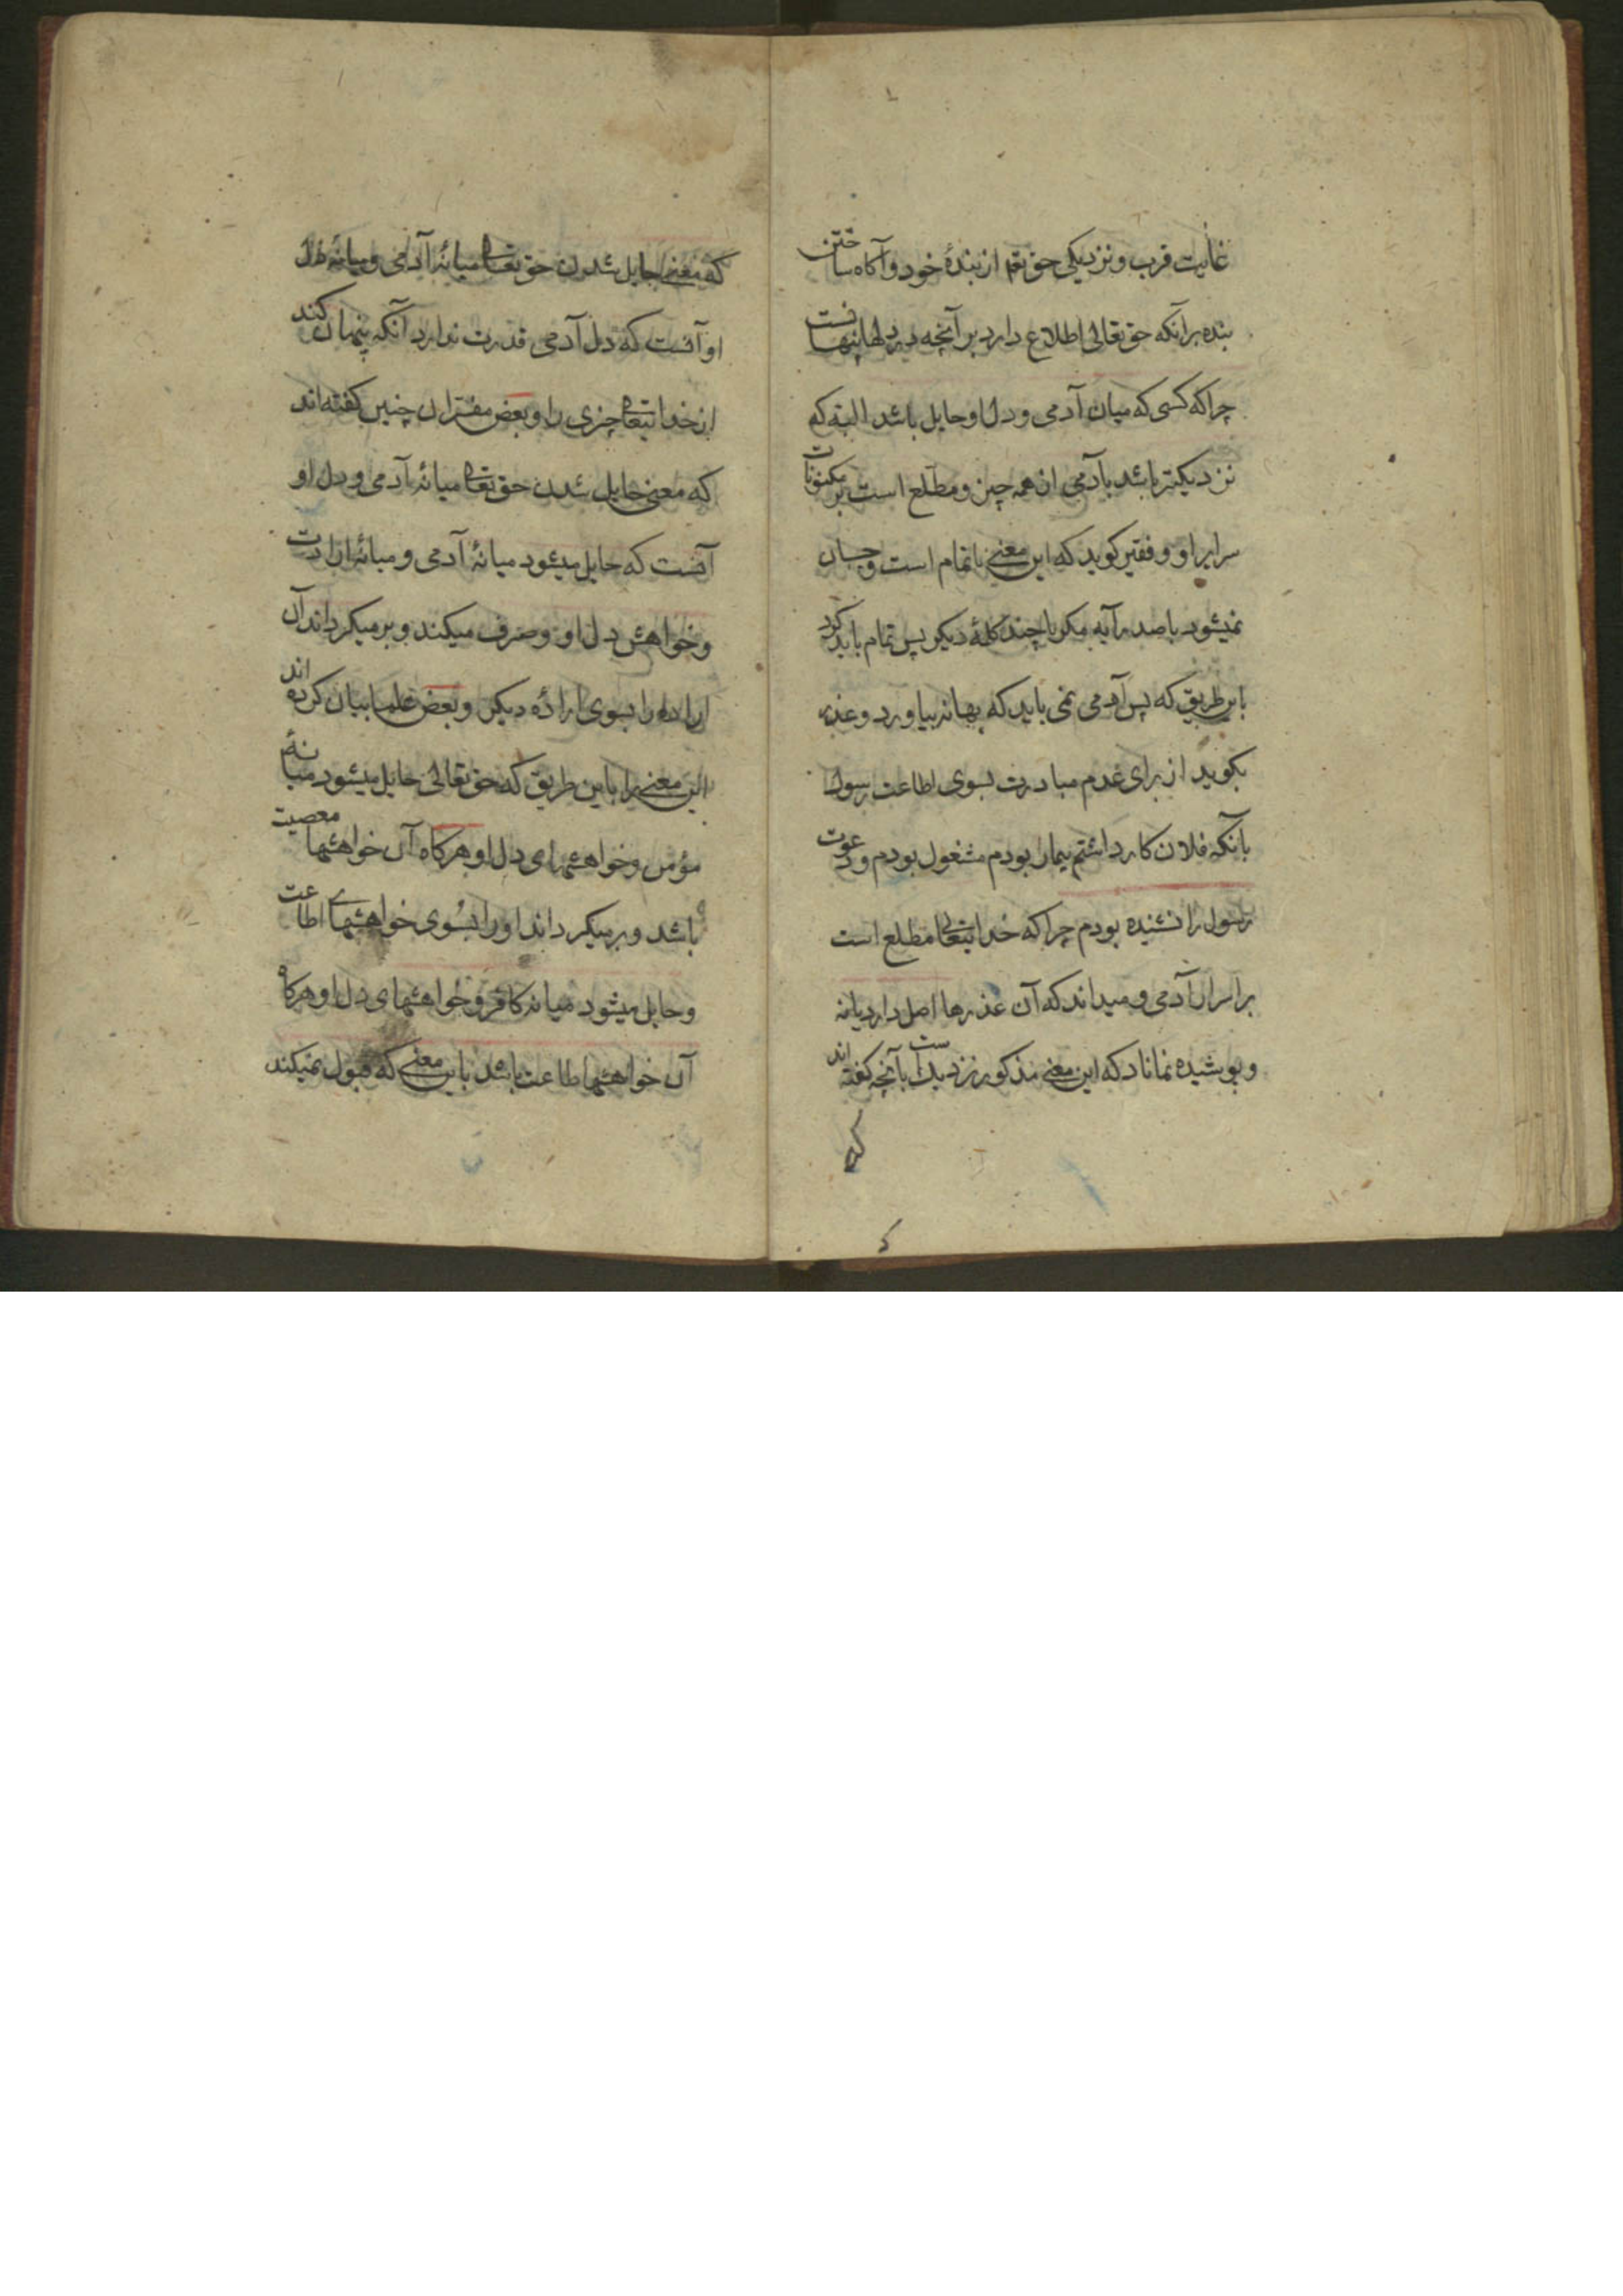 غایت قرب و نزدیکی حق تعم از بندهٔ خود و آکاه ساختن
بنده برانکه حق تعالی اطلاع دارد بر آنچه در دلها پنهانست
چراکه کسی که میان آدمی و دل او حایل باشد البته که
نزدیکتر باشد بآدمی از همه چیز و مطلع است بر مکنونات
سرایر او و فقیر کوید که این معنی ناتمام است و چسپان
نمیشود با صدر آیه مکر با چند کلمهٔ دیکر پس تمام باید کرد
باین طریق که پس آدمی نمی باید که بهانه بیاورد و عذر
بکوید از برای عدم مبادرت بسوی اطاعت رسول
بآنکه فلان کار داشتم بیمار بودم مشغول بودم و دعوت
رسول را نشنیده بودم چراکه خدایتعالی مطلع است
بر اسرار آدمی و میداند که آن عذرها اصل دارد یا نه
و پوشیده نماناد که این معنی مذکور نزدیک است بآنچه کفته اند
که
که معنی حایل شدن حق تعالی میانهٔ آدمی و میانهٔ دل
او آنست که دل آدمی قدرت ندارد آنکه پنهان کند
از خدایتعالی چزی را و بعض مفسران چنین کفته اند
که معنی حایل شدن حق تعالی میانهٔ آدمی و دل او
آنست که حایل میشود میانهٔ آدمی و میانهٔ ارادت
و خواهش دل او و صرف میکند و برمیکرداند آن
اراده را بسوی ارادهٔ دیکر و بعض علما بیان کرده اند
این معنی را باین طریق که حق تعالی حایل میشود میانهٔ
مؤمن و خواهشهای دل او هرکاه آن خواهشها معصیت
باشد و برمیکرداند او را بسوی خواهشهای اطاعت
و حایل میشود میانه کافر و خواهشهای دل او هرکاه
آن خواهشها طاعت باشد باین معنی که قبول نمیکند